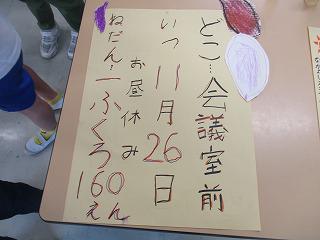 どこ…会議室前
いつ11月26日
お昼休み
ねだん一ふくろ160えん